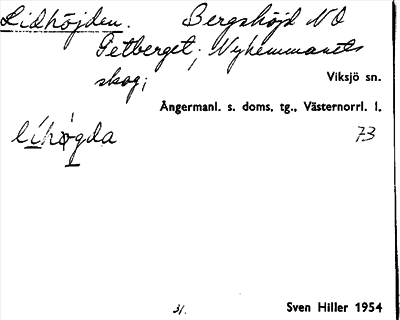 Lidhöjden. Bergshöjd NO
Getberget; Nyhemmanets
skog;
Viksjö sn.
Ångermanl. s. doms, tg., Västernorrl. l.
líhø̀gda
73
31.
Sven Hiller 1954